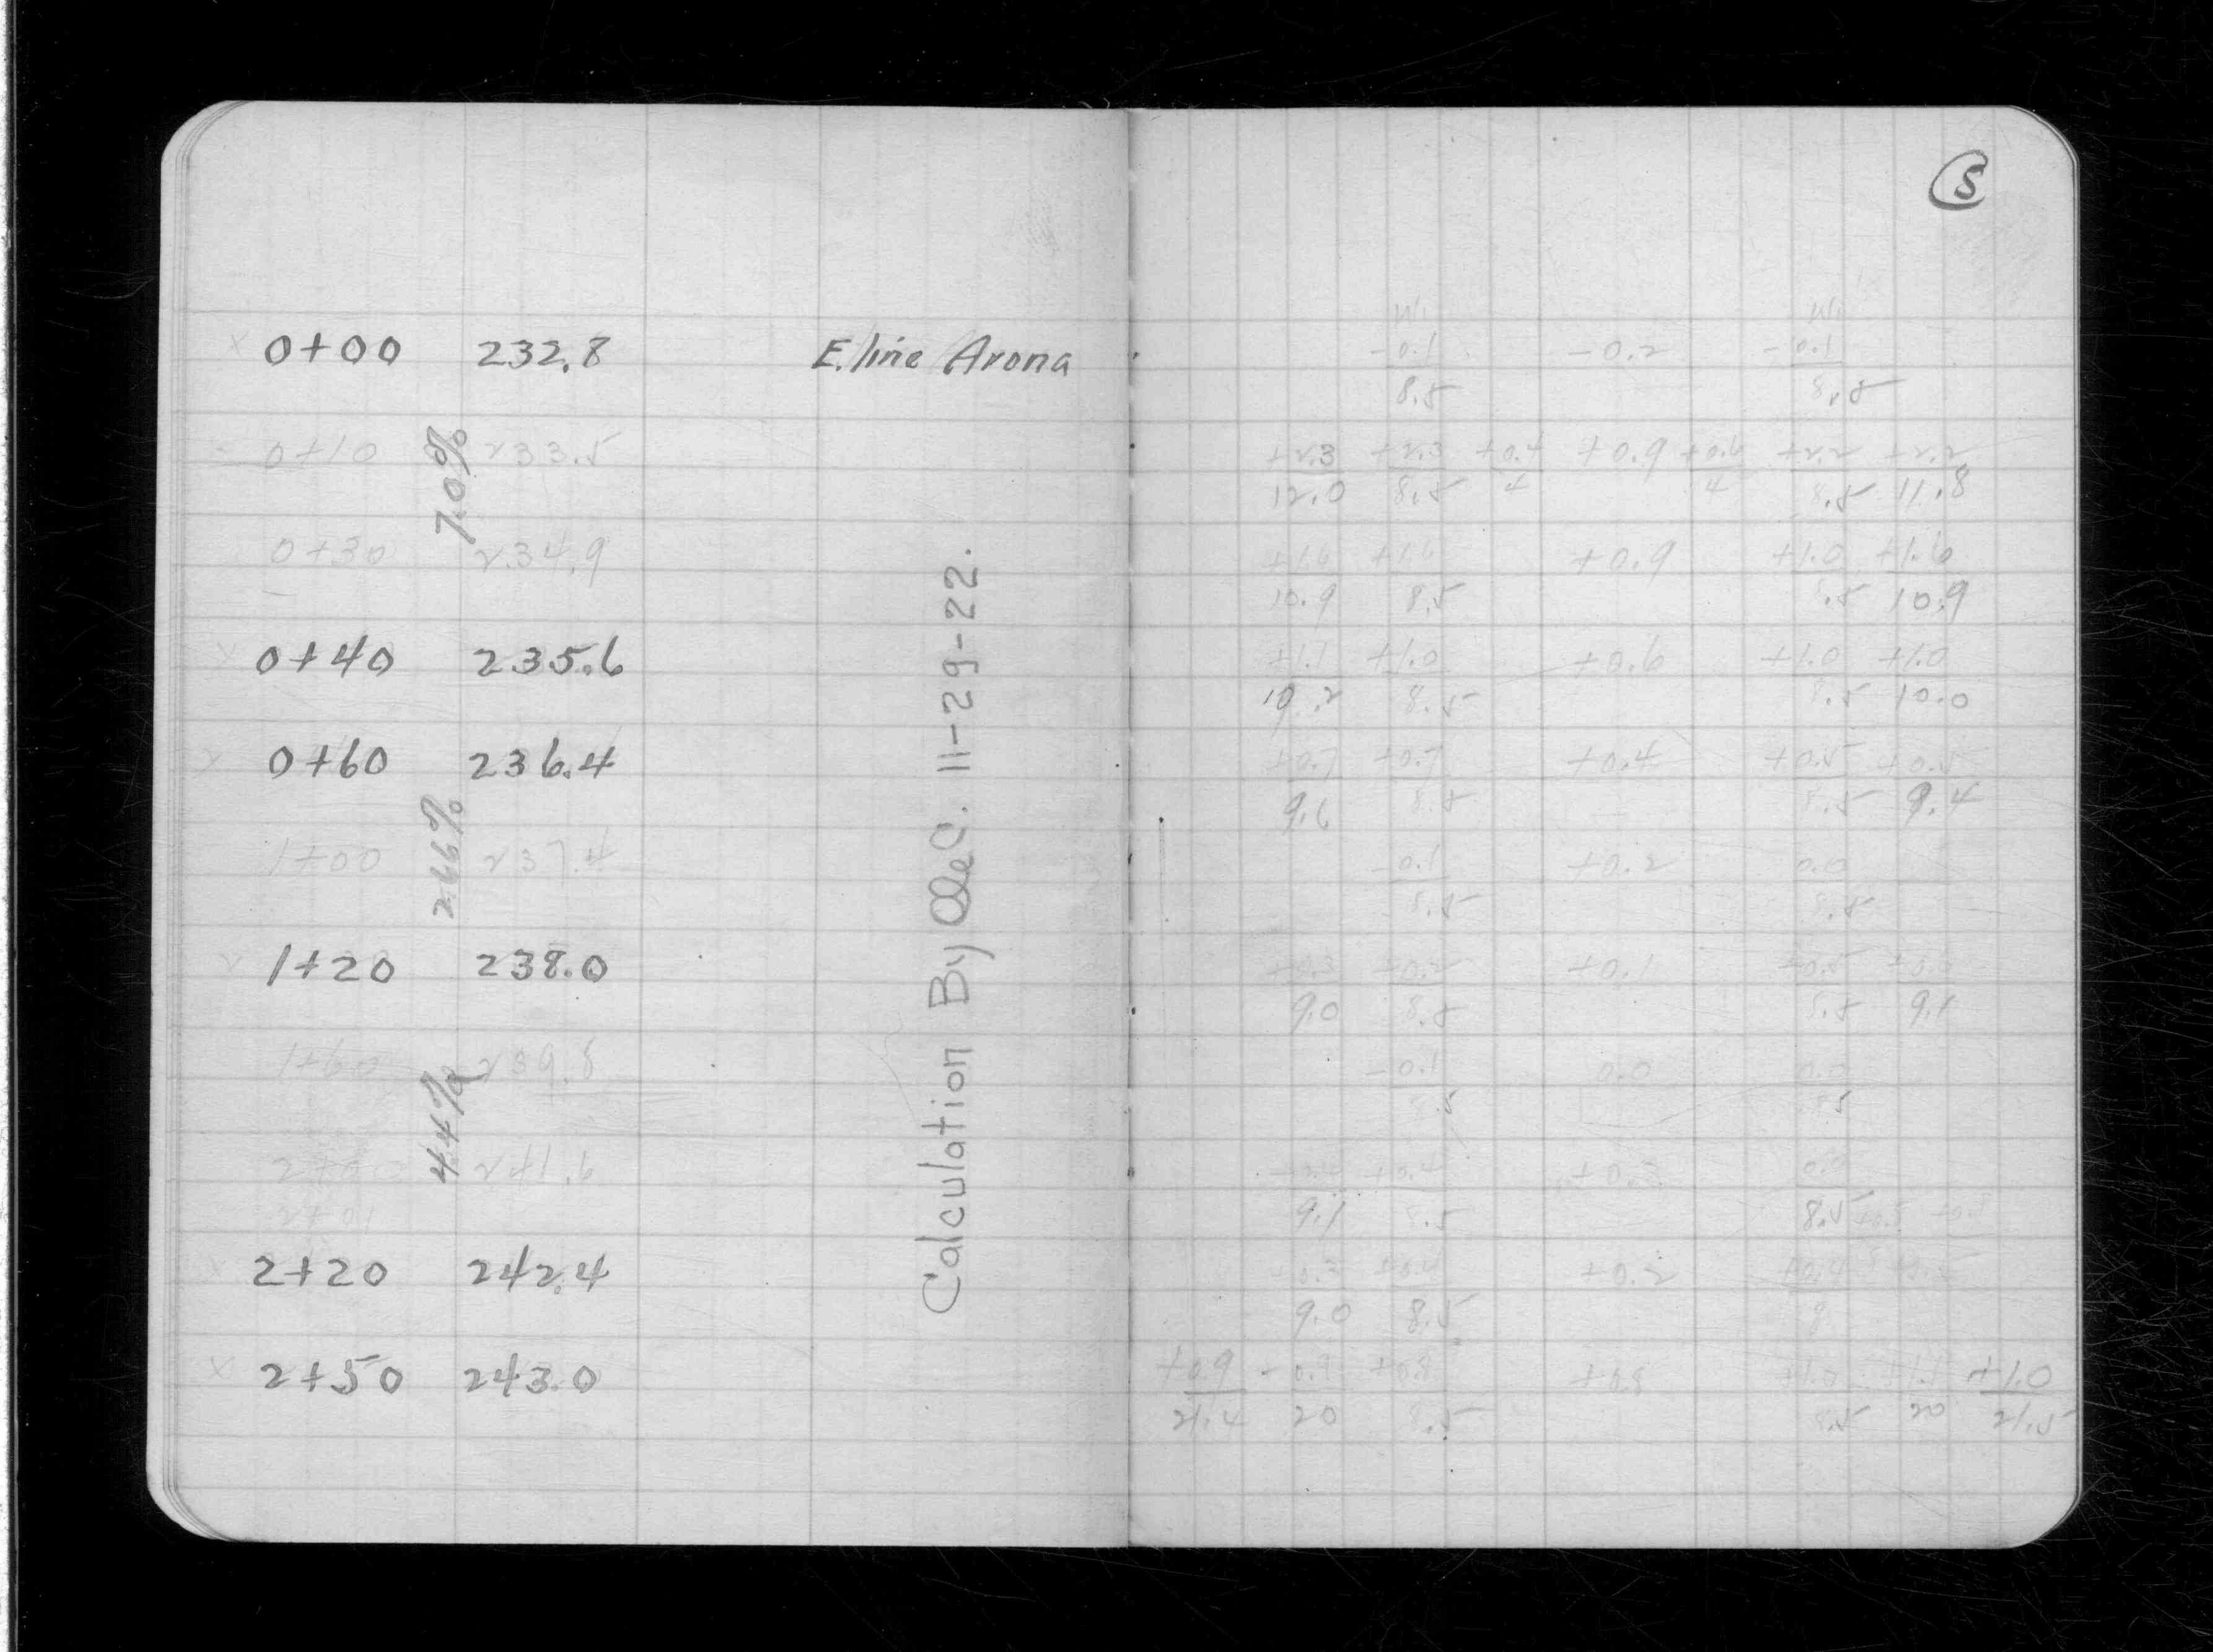 5
0+00 232.8 E. line Arona
-0.1 -0.2 -0.1
8.5 8.5
0+10 233.5 +2.3 +2.3 +0.4 +0.9 +0.6 +2.2 +2.2
12.0 8.5 4 4 8.5 11.8
7.0%
0+30 234.9 +1.6 +1.6 +0.9 +1.0 +1.6
10.9 8.5 8.5 10.9
0+40 235.6 +1.1 +1.0 +0.6 +1.0 +1.0
10.2 8.5 8.5 10.0
0+60 236.4 +0.7 +0.7 +0.4 +0.5 +0.5
9.6 8.5 8.5 9.4
2.66%
1+00 237.4 -0.1 +0.2 0.0
8.5 8.5
1+20 238.0 +0.3 +0.2 +0.1 +0.5
9.0 8.5 8.5 9.1
1+60 239.8 -0.1 0.0 0.0
8.5 8.5
4.4%
2+00 241.6 +0.4 0.0
2+01
9.1 8.5 8.5
2+20 242.4 +0.4 +0.2 +0.4
9.0 8.5
2+50 243.0 +0.9 +0.8 +0.8 +1.0
21.4 20 8.5 8.5 20 21.5
Calculation By 11-29-22.